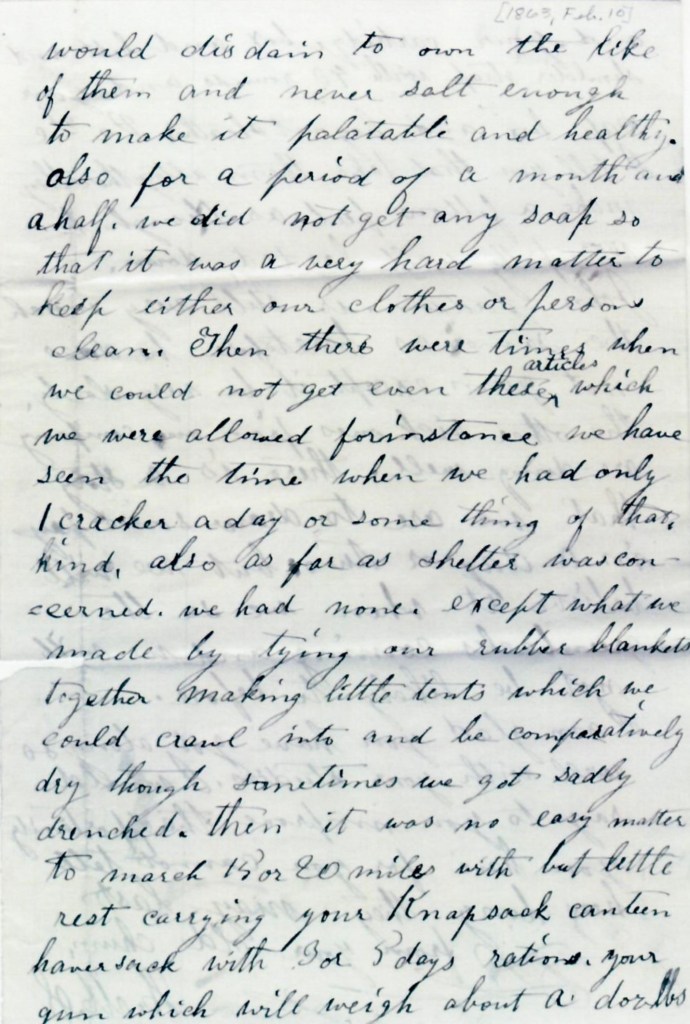 [1863, Feb. 10]
would disdain to own the like
of them and never salt enough
to make it palatable and healthy.
also for a period of a month and
a half. we did not get any soap so
that it was a very hard matter to
keep either our clothes or persons
clean. Then there were times when
articles
we could not get even these ^ which
we were allowed forinstance we have
seen the time when we had only
1 cracker a day or some thing of that,
kind, also as far as shelter was con-
-cerned. we had none. except what we
made by tying our rubber blankets
together making little tents which we
could crawl into and be comparatively
dry though sometimes we got sadly
drenched. then it was no easy matter
to march 15 or 20 miles with but little
rest carrying your Knapsack canteen
haversack with 3 or 5 days rations. your
gun which will weigh about a doz lbs